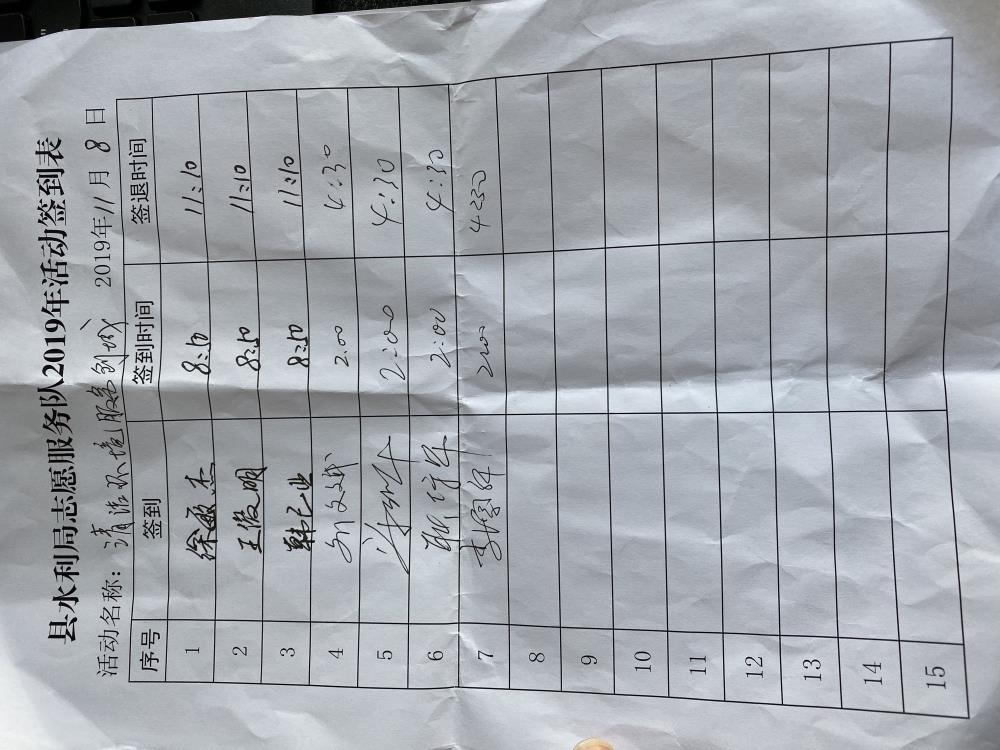 县水利局志愿服务队2019年活动签到表
活动名称：清洁环境服务创城 2019年11月8日
序号 签到 签到时间 签退时间
1 徐敏杰 8:50 11:10
2 王俊明 8:50 11:10
3 韩已业 8:50 11:10
4 2:00 4:30
5 2:00 4:30
6 2:00 4:30
7 2:00 4:30
8
9
10
11
12
13
14
15